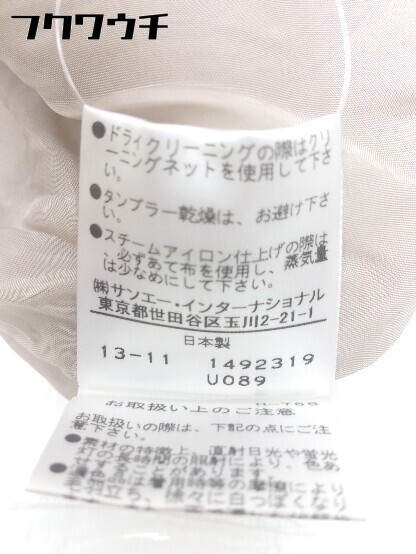 フクワウチ
●ドライクリーニングの際はクリ
ーニングネットを使用して下さ
い。
●タンブラー乾燥は、お避け下さ
い。
●スチームアイロン仕上げの際は
、必ずあて布を使用し、蒸気量
は少なめにして下さい。
㈱サンエー・インターナショナル
東京都世田谷区玉川2-21-1
日本製
13-11 1492319
U089
お取扱い上のご注意
お取扱いの際は、下記の点にご注
意下さい。
●素材の特徴上、直射日光や蛍光
灯の長時間の照射により、色あ
●濃色品は着用時等の摩擦により
毛羽立ち、徐々に白っぽくなり